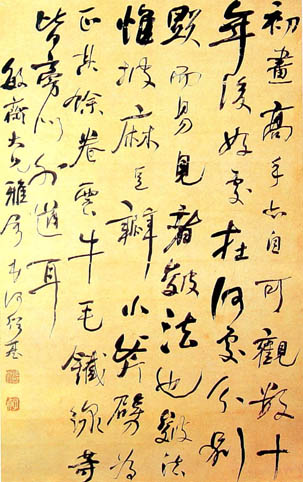 初畫高手亦自可觀數十
年後好處在何處分別
顯而易見者皴法也皴法
惟披麻豆瓣小斧劈為
正其餘卷雲牛毛鐵線等
皆旁門外道耳
敏齋大兄雅屬 何紹基